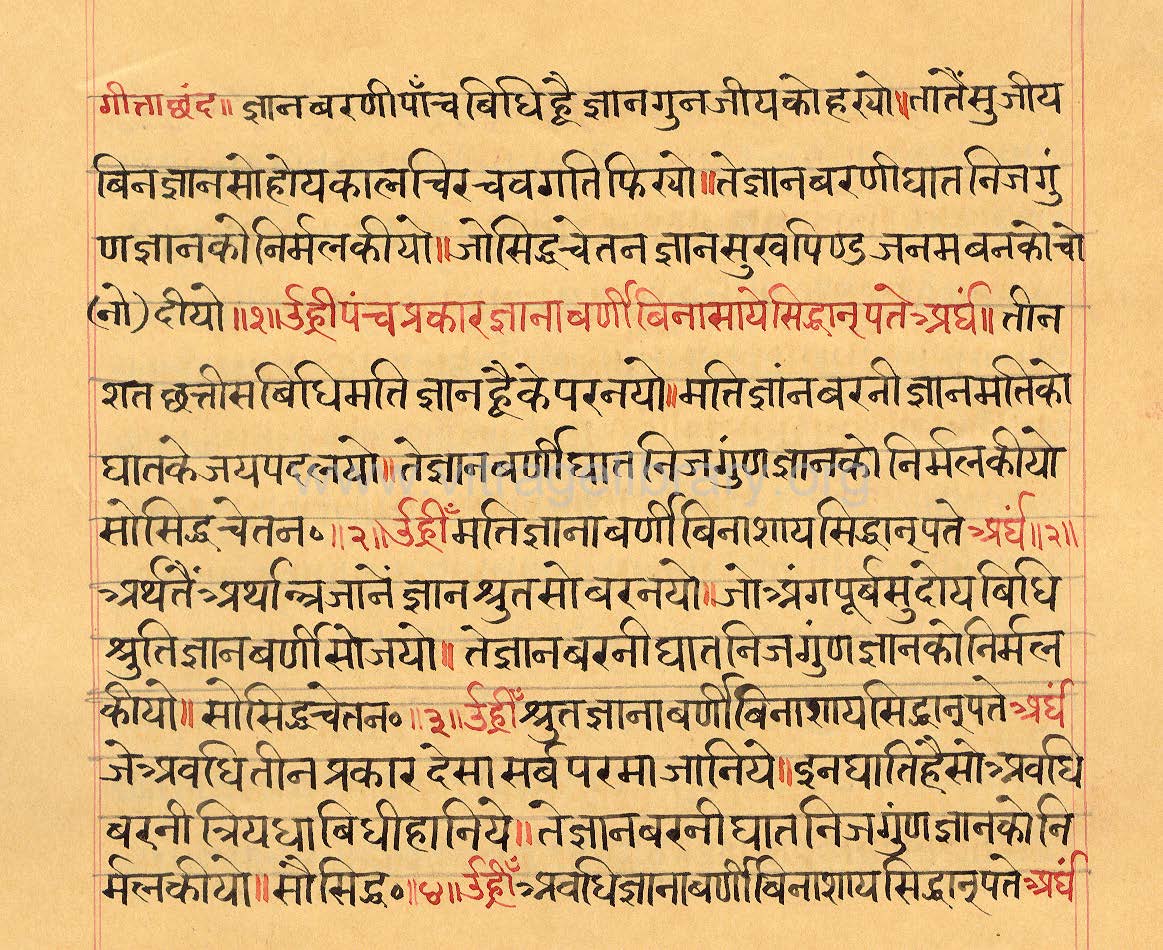 गीत्ताछंद॥ ज्ञानबरणीपाँचबिधिहै ज्ञानगुनजीयकोहरयो॥तातैंसुजीय
बिनज्ञानसोहोयकालचिरचवगतिफिरयो॥तेज्ञानबरणीघातनिजगुं
णज्ञानकोनिर्मलकीयो॥जोसिद्धचेतनज्ञानसुखपिण्डजनमबनकोचो
(नो)दीयो॥१॥उँह्रीपंचप्रकारज्ञानाबर्णीबिनासायेसिद्धान्पतेअर्घं॥तीन
शतछत्तीसबिधिमतिज्ञानहैकेपरनयो॥मत्तिज्ञांनबरनीज्ञानमतिको
घातकेजयपदलयो॥तेज्ञानबर्णीघातनिजगुंणज्ञानकोनिर्मलकीयो
सोसिद्धचेतन०॥२॥उँह्रीँमतिज्ञानाबर्णीबिनाशायसिद्धान्पतेअर्घं॥२॥
अर्थतैंअर्थान्त्रजानेंज्ञानश्रुतसोबरनयो॥जोअंगपूर्बसुदोयबिधि
श्रुतिज्ञानबर्णीसोजयो॥तेज्ञानबरनीघातनिजगुंणज्ञानकोनिर्मल
कीयो॥सोसिद्धचेतन०॥३॥उँह्रीँश्रुतज्ञानाबर्णीबिनाशायसिद्धान्पतेअर्घं
जेअवधितीनप्रकारदेसासर्बपरमाजानिये॥इनघातिहैसोअवधि
बरनीत्रियधाबिधीहानिये॥तेज्ञानबरनीघातनिजगुंणज्ञानकोनि
र्मलकीयो॥सोसिद्ध०॥४॥उँह्रीँअवधिज्ञानाबर्णीबिनाशायसिद्धान्पतेअर्घं